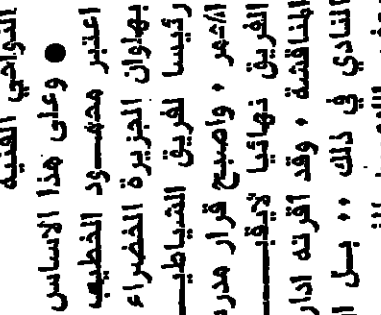 النواحي الفنية
● وعلى هذا الاساس
اعتبر محمـــود الخطيب
بهلوان الجزيرة الخضراء
رئيسا لفريق الشياطيـــ
الاحمر ، واصبح قرار مدر
الفريق نهائيا لايقبـــــــ
المناقشة ، وقد اقرته ادار
النادي في ذلك ،، بـــل